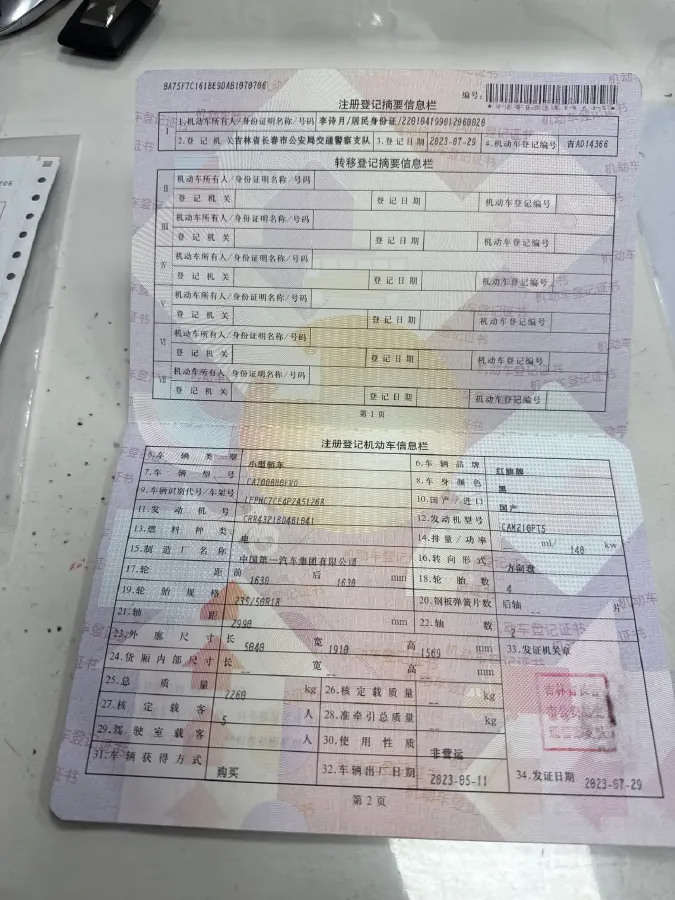 BA75F7C1618E9DAB1070706
编号:
注册登记摘要信息栏
I 1.机动车所有人/身份证明名称/号码 李诗月/居民身份证/220104199012060020
2.登记机关 吉林省长春市公安局交通警察支队 3.登记日期 2023-07-29 4.机动车登记编号 吉AD14366
转移登记摘要信息栏
II 机动车所有人/身份证明名称/号码
登记机关 登记日期 机动车登记编号
III 机动车所有人/身份证明名称/号码
登记机关 登记日期 机动车登记编号
IV 机动车所有人/身份证明名称/号码
登记机关 登记日期 机动车登记编号
V 机动车所有人/身份证明名称/号码
登记机关 登记日期 机动车登记编号
VI 机动车所有人/身份证明名称/号码
登记机关 登记日期 机动车登记编号
VII 机动车所有人/身份证明名称/号码
登记机关 登记日期 机动车登记编号
第1页
注册登记机动车信息栏
5.车辆类型 小型轿车 6.车辆品牌 红旗牌
7.车辆型号 8.车身颜色 黑
9.车辆识别代号/车架号 10.国产/进口 国产
11.发动机号 12.发动机型号 CAM210PT5
13.燃料种类 电 14.排量/功率 ml/ 140 kw
15.制造厂名称 中国第一汽车集团有限公司 16.转向形式 方向盘
17.轮距 前 1630 后 1630 mm 18.轮胎数 4
19.轮胎规格 235/50R18 20.钢板弹簧片数 后轴 -- 片
21.轴距 2990 mm 22.轴数 2
23.外廓尺寸 长 5040 宽 1910 高 1569 mm 33.发证机关章
24.货厢内部尺寸 长 -- 宽 -- 高 -- mm
25.总质量 2260 kg 26.核定载质量 -- kg
27.核定载客 5 人 28.准牵引总质量 -- kg
29.驾驶室载客 -- 人 30.使用性质 非营运
31.车辆获得方式 购买 32.车辆出厂日期 2023-05-11 34.发证日期 2023-07-29
第2页